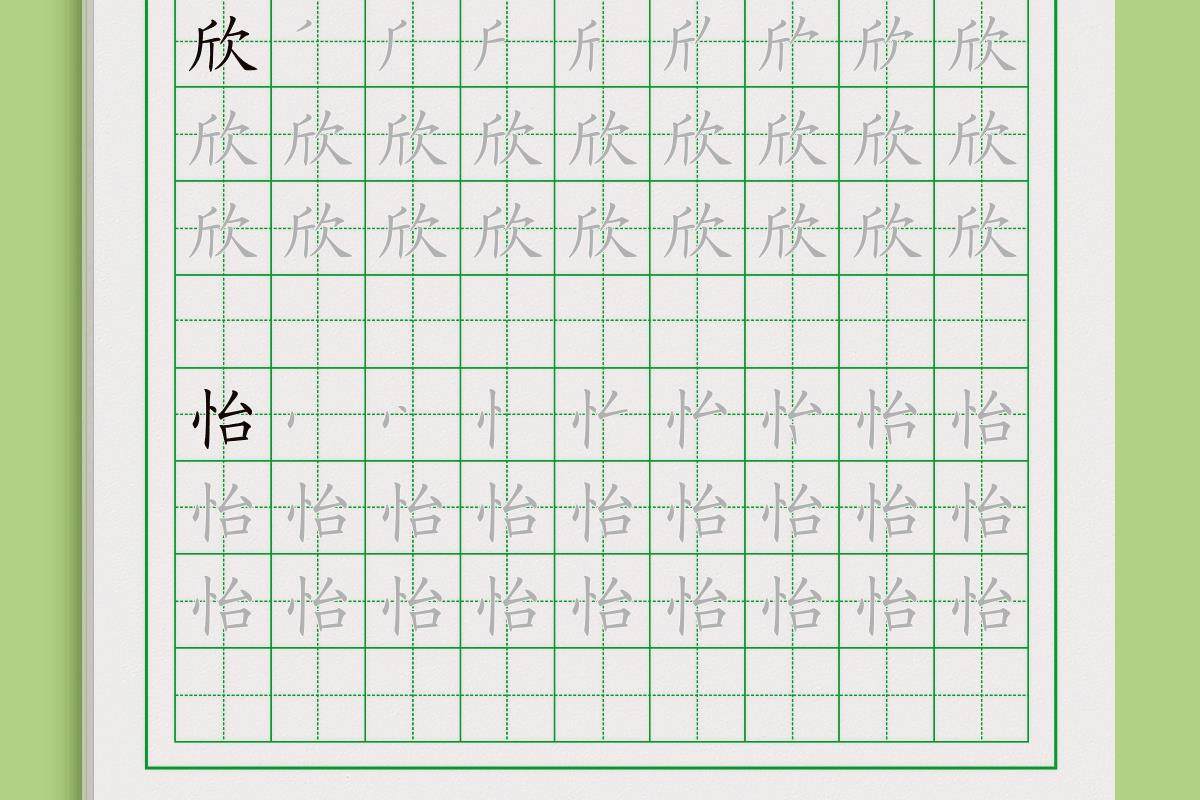 欣 丿 𠂆 斤 欣 欣
欣 欣 欣 欣 欣 欣 欣 欣 欣
欣 欣 欣 欣 欣 欣 欣 欣 欣
怡 忄 怡
怡 怡 怡 怡 怡 怡 怡 怡 怡
怡 怡 怡 怡 怡 怡 怡 怡 怡